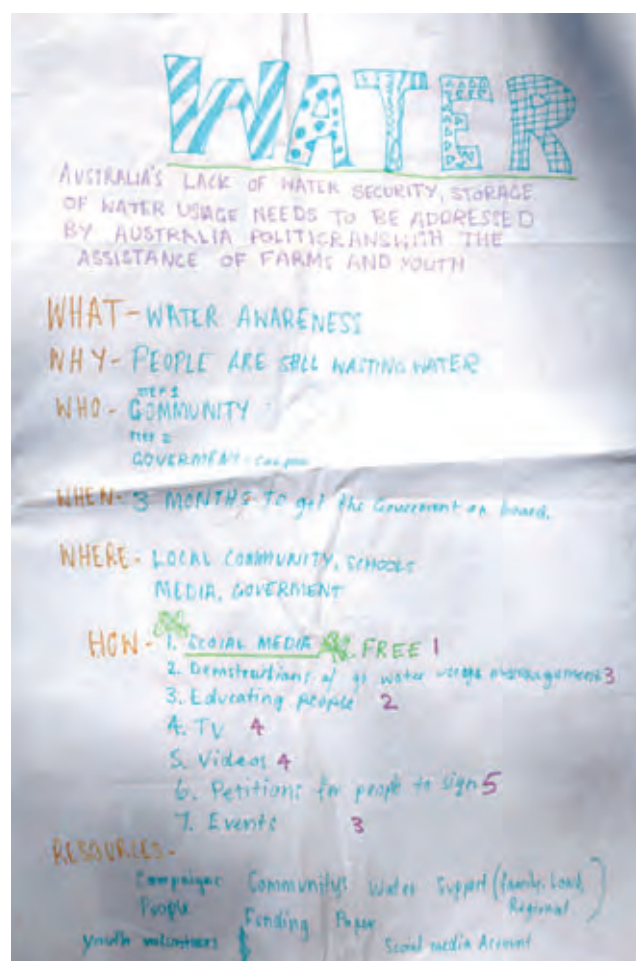 WATER
AUSTRALIA'S LACK OF WATER SECURITY, STORAGE
OF WATER USAGE NEEDS TO BE ADDRESSED
BY AUSTRALIA POLITICRANSWITH THE
ASSISTANCE OF FARMS AND YOUTH
WHAT - WATER AWARENESS
WHY - PEOPLE ARE STILL WASTING WATER
WHO - STEP 1
COMMUNITY
STEP 2
GOVERMENT -
WHEN - 3 MONTHS TO get the Government on board.
WHERE - LOCAL COMMUNITY, SCHOOLS
MEDIA, GOVERMENT
HOW - 1. SCOIAL MEDIA FREE 1
2. water management 3
3. Educating people 2
4. TV 4
5. Videos 4
6. Petitions for people to sign 5
7. Events 3
RESOURCES -
Campaigns Communitys Water Support (family, Local,
Regional)
People Funding Paper
youth volunteers $ Social media Account